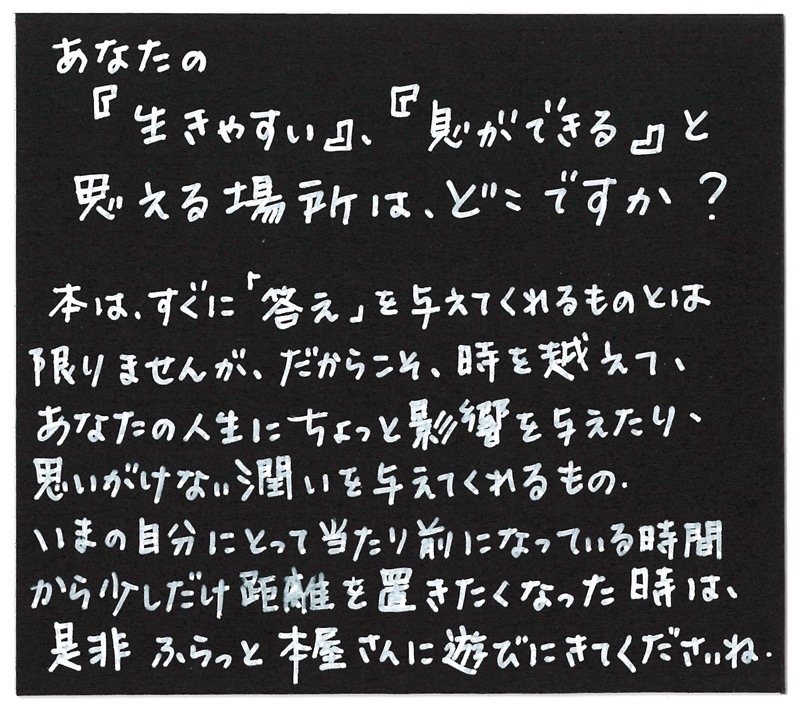 あなたの
『生きやすい』、『息ができる』と
思える場所は、どこですか？
本は、すぐに「答え」を与えてくれるものとは
限りませんが、だからこそ、時を越えて、
あなたの人生にちょっと影響を与えたり、
思いがけない潤いを与えてくれるもの。
いまの自分にとって当たり前になっている時間
から少しだけ距離を置きたくなった時は、
是非ふらっと本屋さんに遊びにきてくださいね。